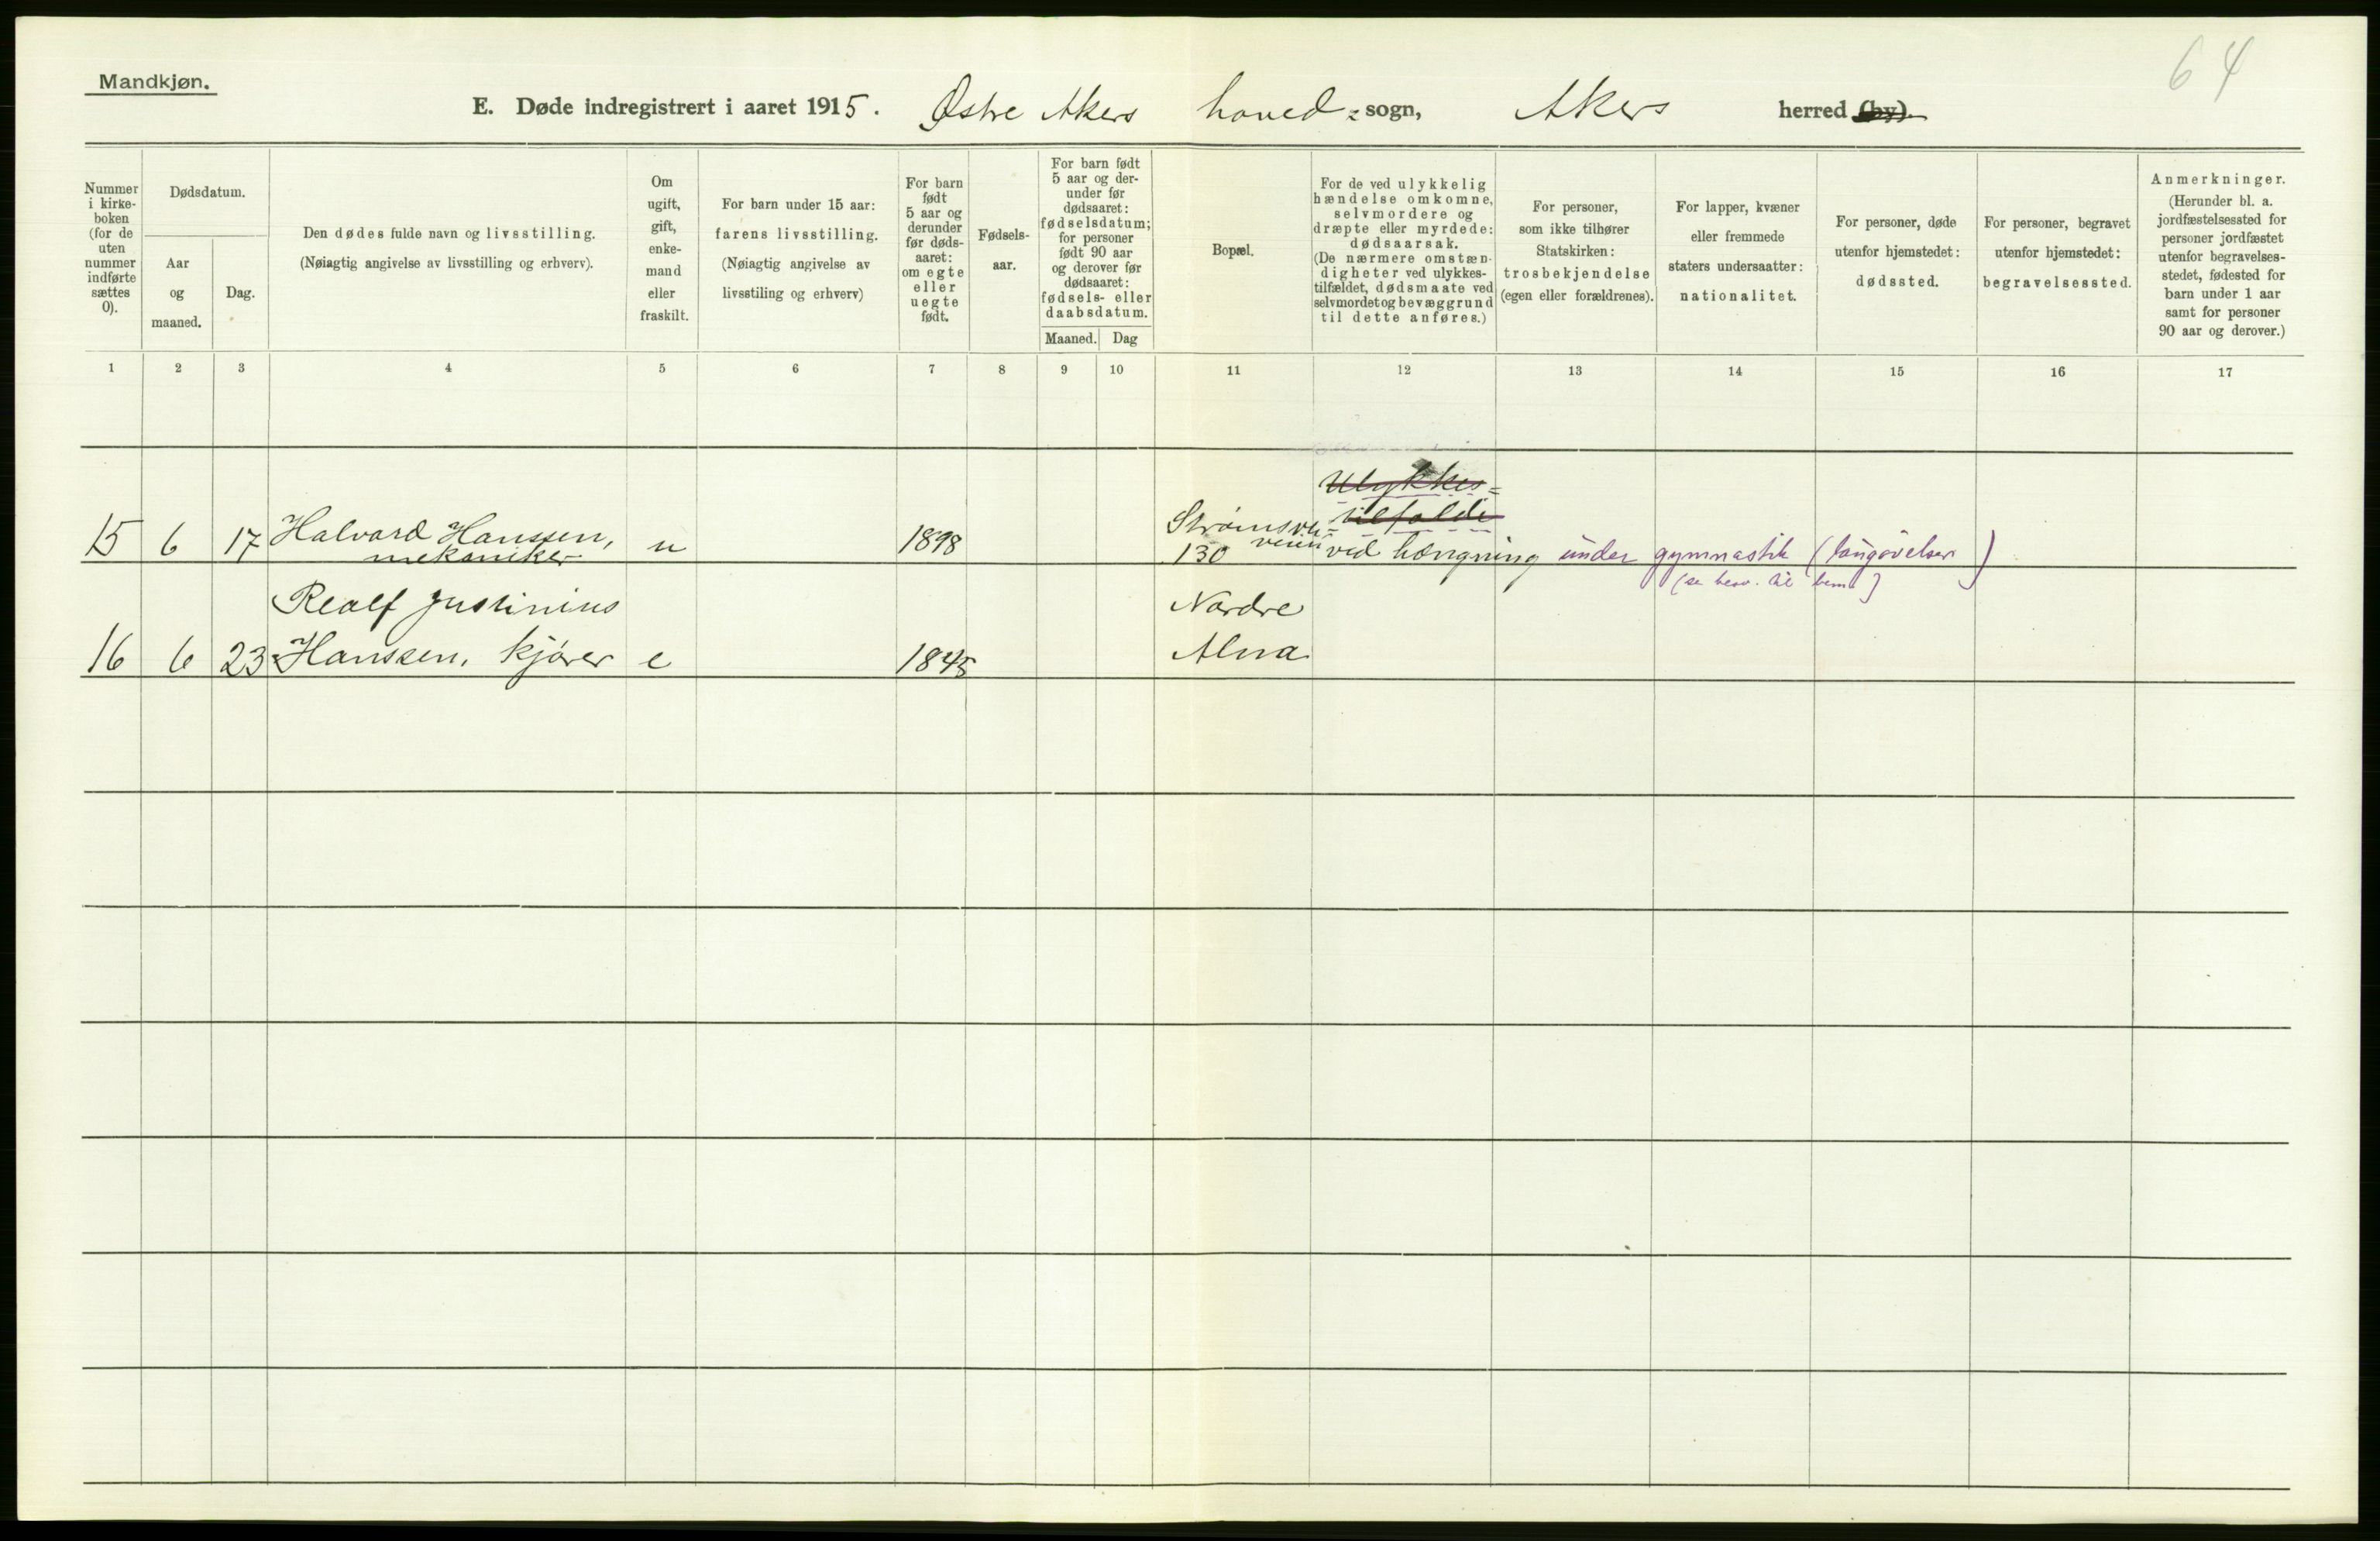 64
Mandkjøn.
E. Døde indregistrert i aaret 1915. Østre Akers hoved-sogn, Akers herred (by).
Nummer
i kirke-
boken
(for de
uten
nummer
indførte
sættes
0).
Dødsdatum.
Aar
og
maaned.
Dag.
Den dødes fulde navn og livsstilling.
(Nøiagtig angivelse av livsstilling og erhverv).
Om
ugift,
gift,
enke-
mand
eller
fraskilt.
For barn under 15 aar:
farens livsstilling.
(Nøiagtig angivelse av
livsstiling og erhverv)
For barn
født
5 aar og
derunder
før døds-
aaret:
om egte
eller
uegte
født.
Fødsels-
aar.
For barn født
5 aar og der-
under før
dødsaaret:
fødselsdatum;
for personer
født 90 aar
og derover før
dødsaaret:
fødsels- eller
daabsdatum.
Maaned. Dag
Bopæl.
For de ved ulykkelig
hændelse omkomne,
selvmordere og
dræpte eller myrdede:
dødsaarsak.
(De nærmere omstæn-
digheter ved ulykkes-
tilfældet, dødsmaate ved
selvmordet og bevæggrund
til dette anføres.)
For personer,
som ikke tilhører
Statskirken:
trosbekjendelse
(egen eller forældrenes).
For lapper, kvæner
eller fremmede
staters undersaatter:
nationalitet.
For personer, døde
utenfor hjemstedet:
dødssted.
For personer, begravet
utenfor hjemstedet:
begravelsessted.
Anmerkninger.
(Herunder bl. a.
jordfæstelsessted for
personer jordfæstet
utenfor begravelses-
stedet, fødested for
barn under 1 aar
samt for personer
90 aar og derover.)
1 2 3 4 5 6 7 8 9 10 11 12 13 14 15 16 17
Ulykkes-
tilfælde
15 6 17 Halvard Hanssen, u 1898 Strøms
mekaniker 130 veien ved hængning under gymnastik (
(se besv. til bem.)
Realf Justinius Nordre
16 6 23 Hanssen, kjører e 1845 Alna